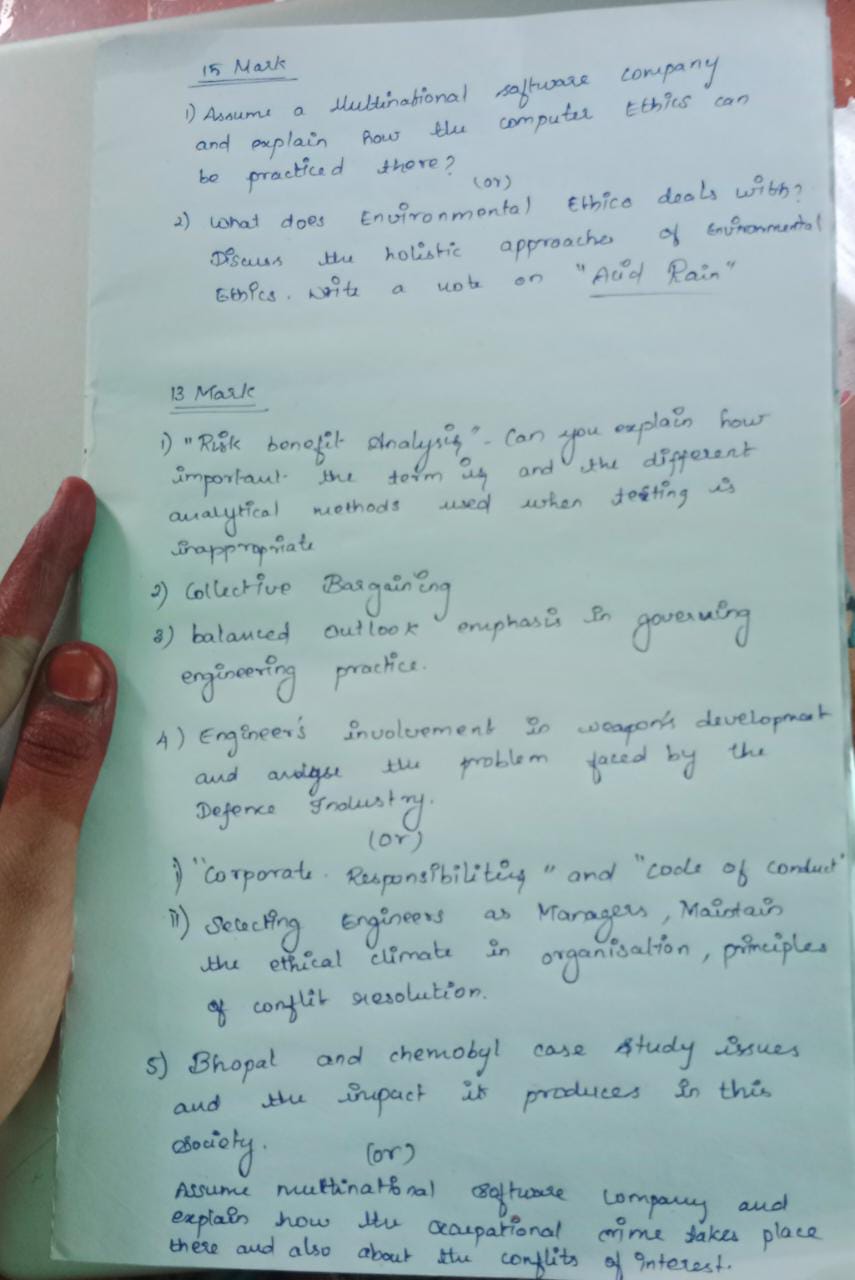 15 Mark
1) Assume a Multinational software company
and explain how the computer Ethics can
be practiced there?
(or)
2) What does Environmental Ethics deals with?
Discuss the holistic approaches of Environmental
Ethics. Write a note on "Acid Rain"
13 Mark
1) "Risk benefit Analysis" - Can you explain how
important the term is and the different
analytical methods used when testing is
inappropriate
2) Collective Bargaining
3) balanced outlook emphasis in governing
engineering practice.
4) Engineer's involvement in weapon's development
and analyse the problem faced by the
Defence Industry.
(or)
i) "Corporate Responsibilities" and "code of conduct"
ii) Selecting Engineers as Managers, Maintain
the ethical climate in organisation, principles
of conflit resolution.
5) Bhopal and chernobyl case study issues
and the impact it produces in this
society.
(or)
Assume multinational software company and
explain how the occupational crime takes place
there and also about the conflits of interest.